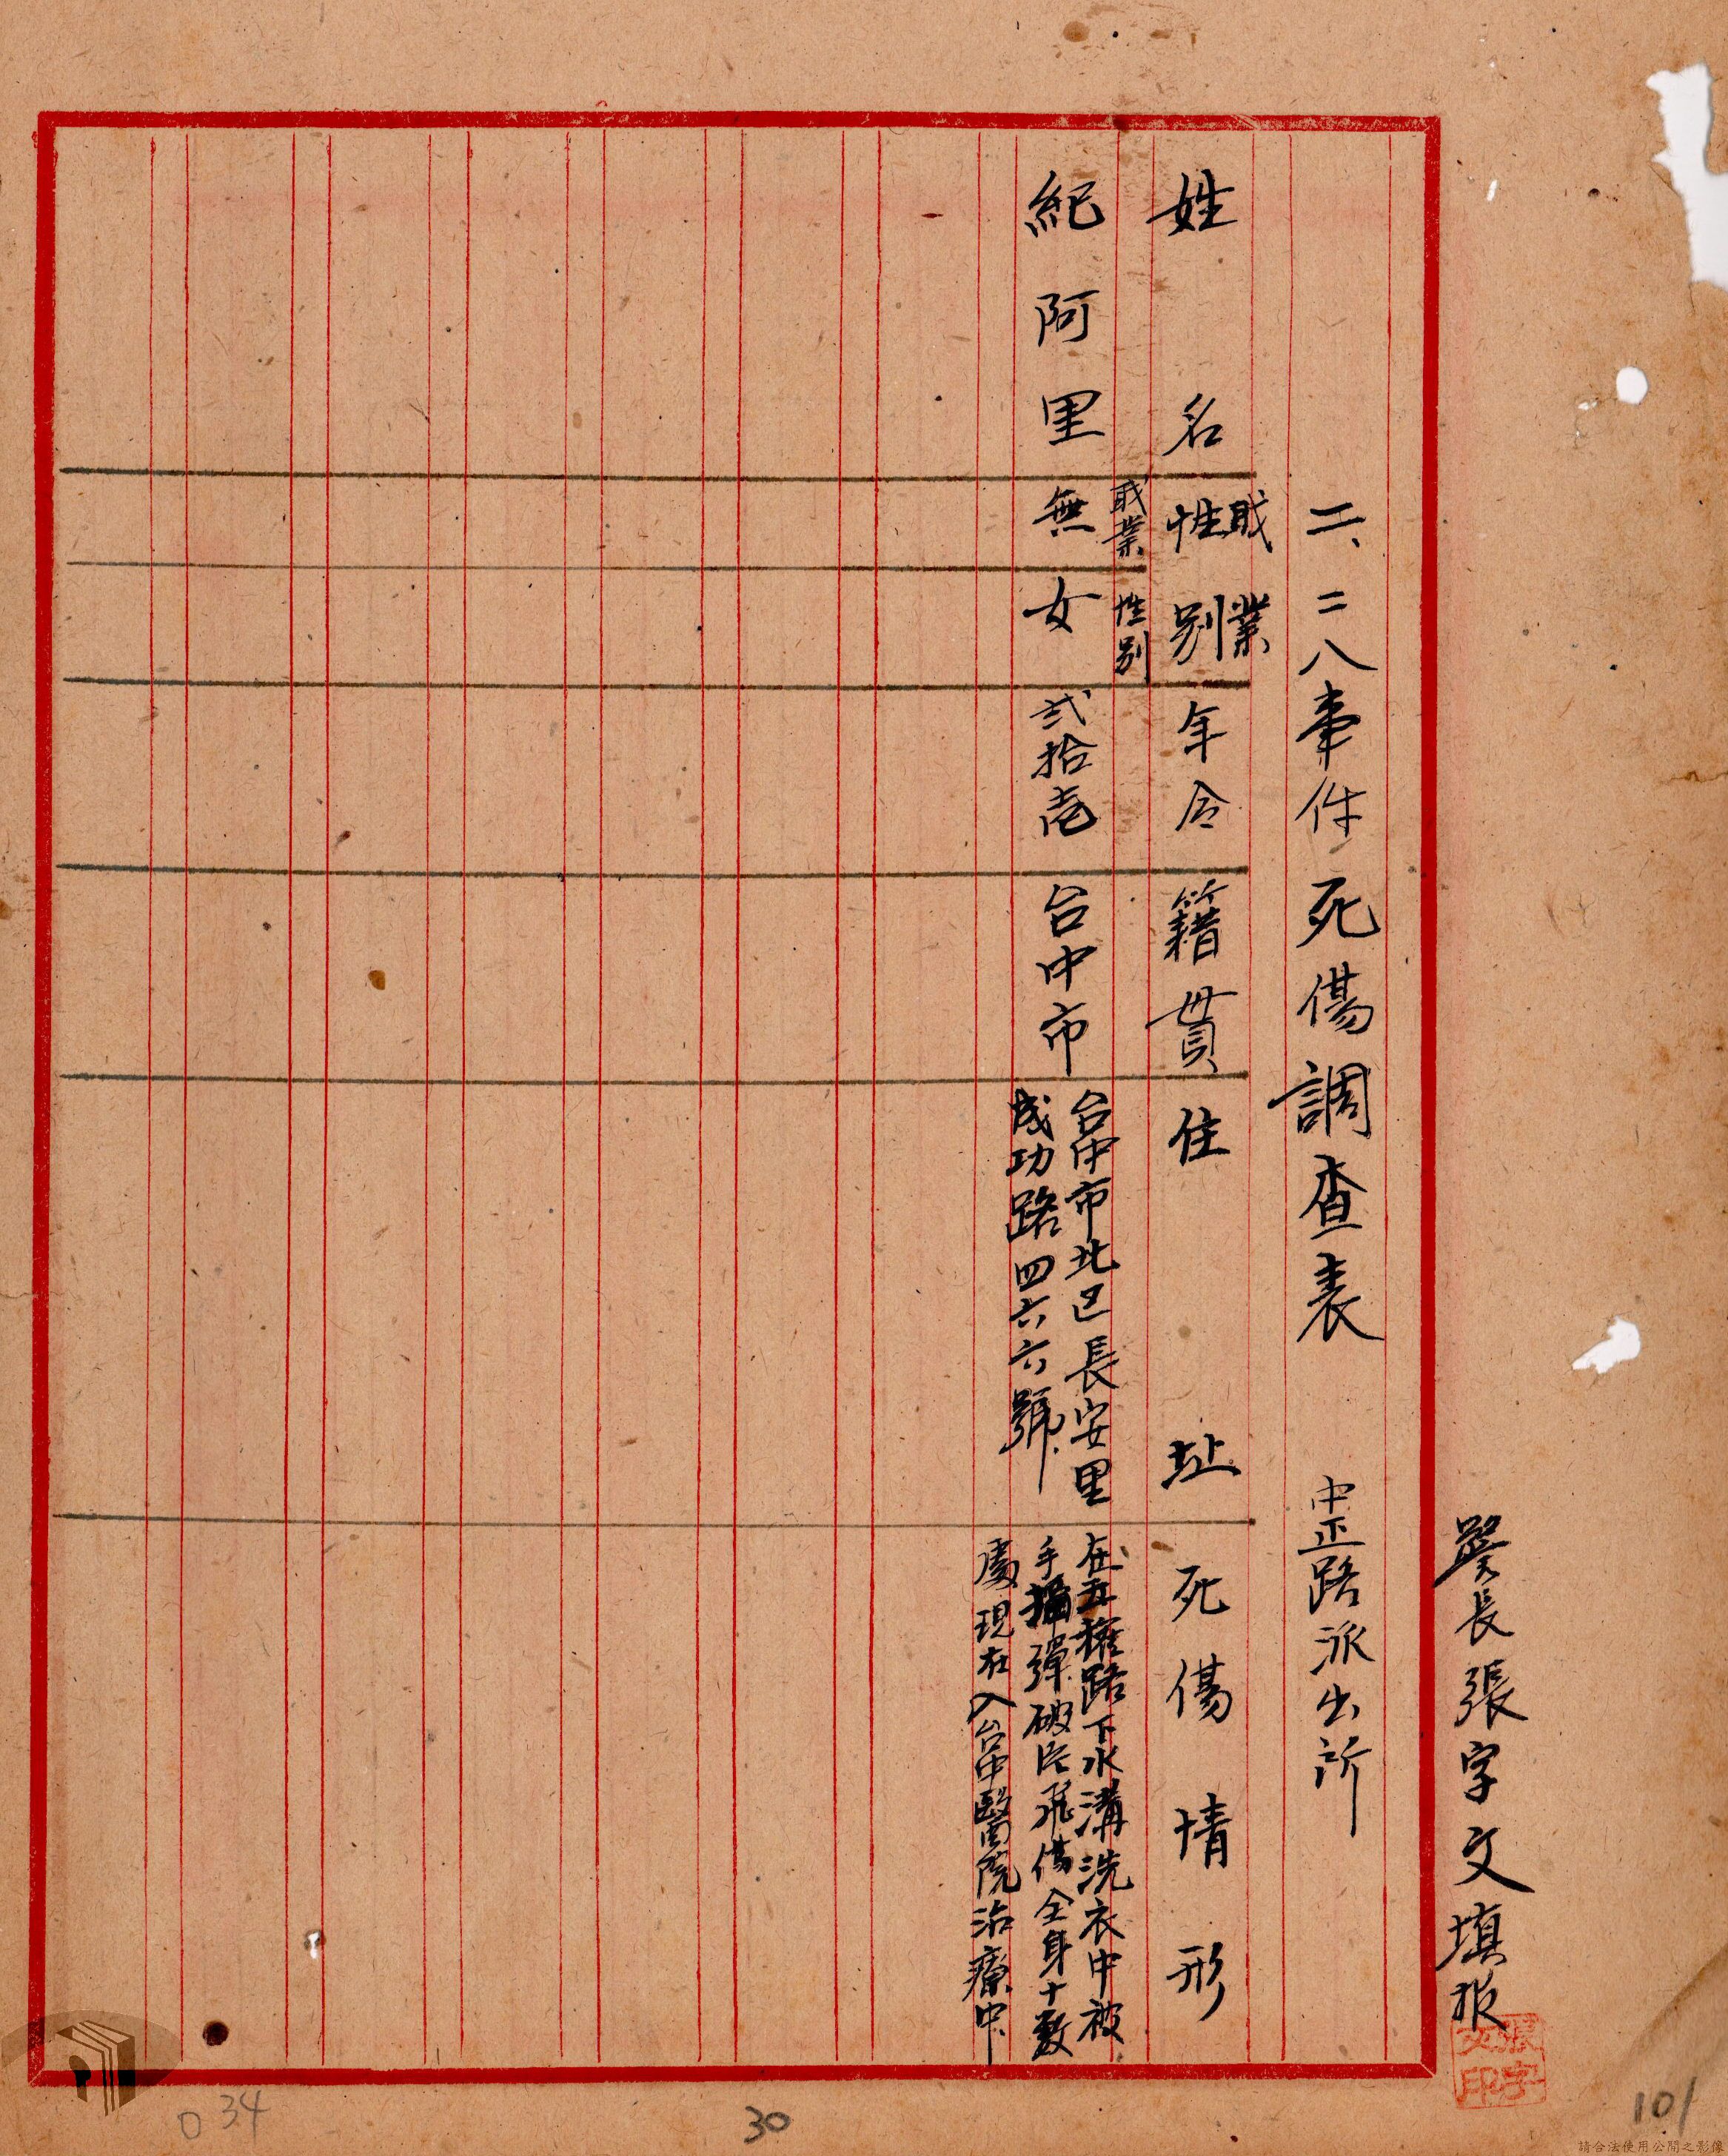 警長張字文填报
張字文印
二、二八事件死傷調査表 中正路派出所
职業
姓名 性别 年令 籍貫 住址 死傷情形
职業 性别
紀阿里 無 女 弍拾壱 台中市
台中市北区長安里
成功路四六六號
在五權路下水溝洗衣中被
手擲彈破片飛傷全身十数
處現在入台中醫院治療中
0 34
30
101
請合法使用公開之影像